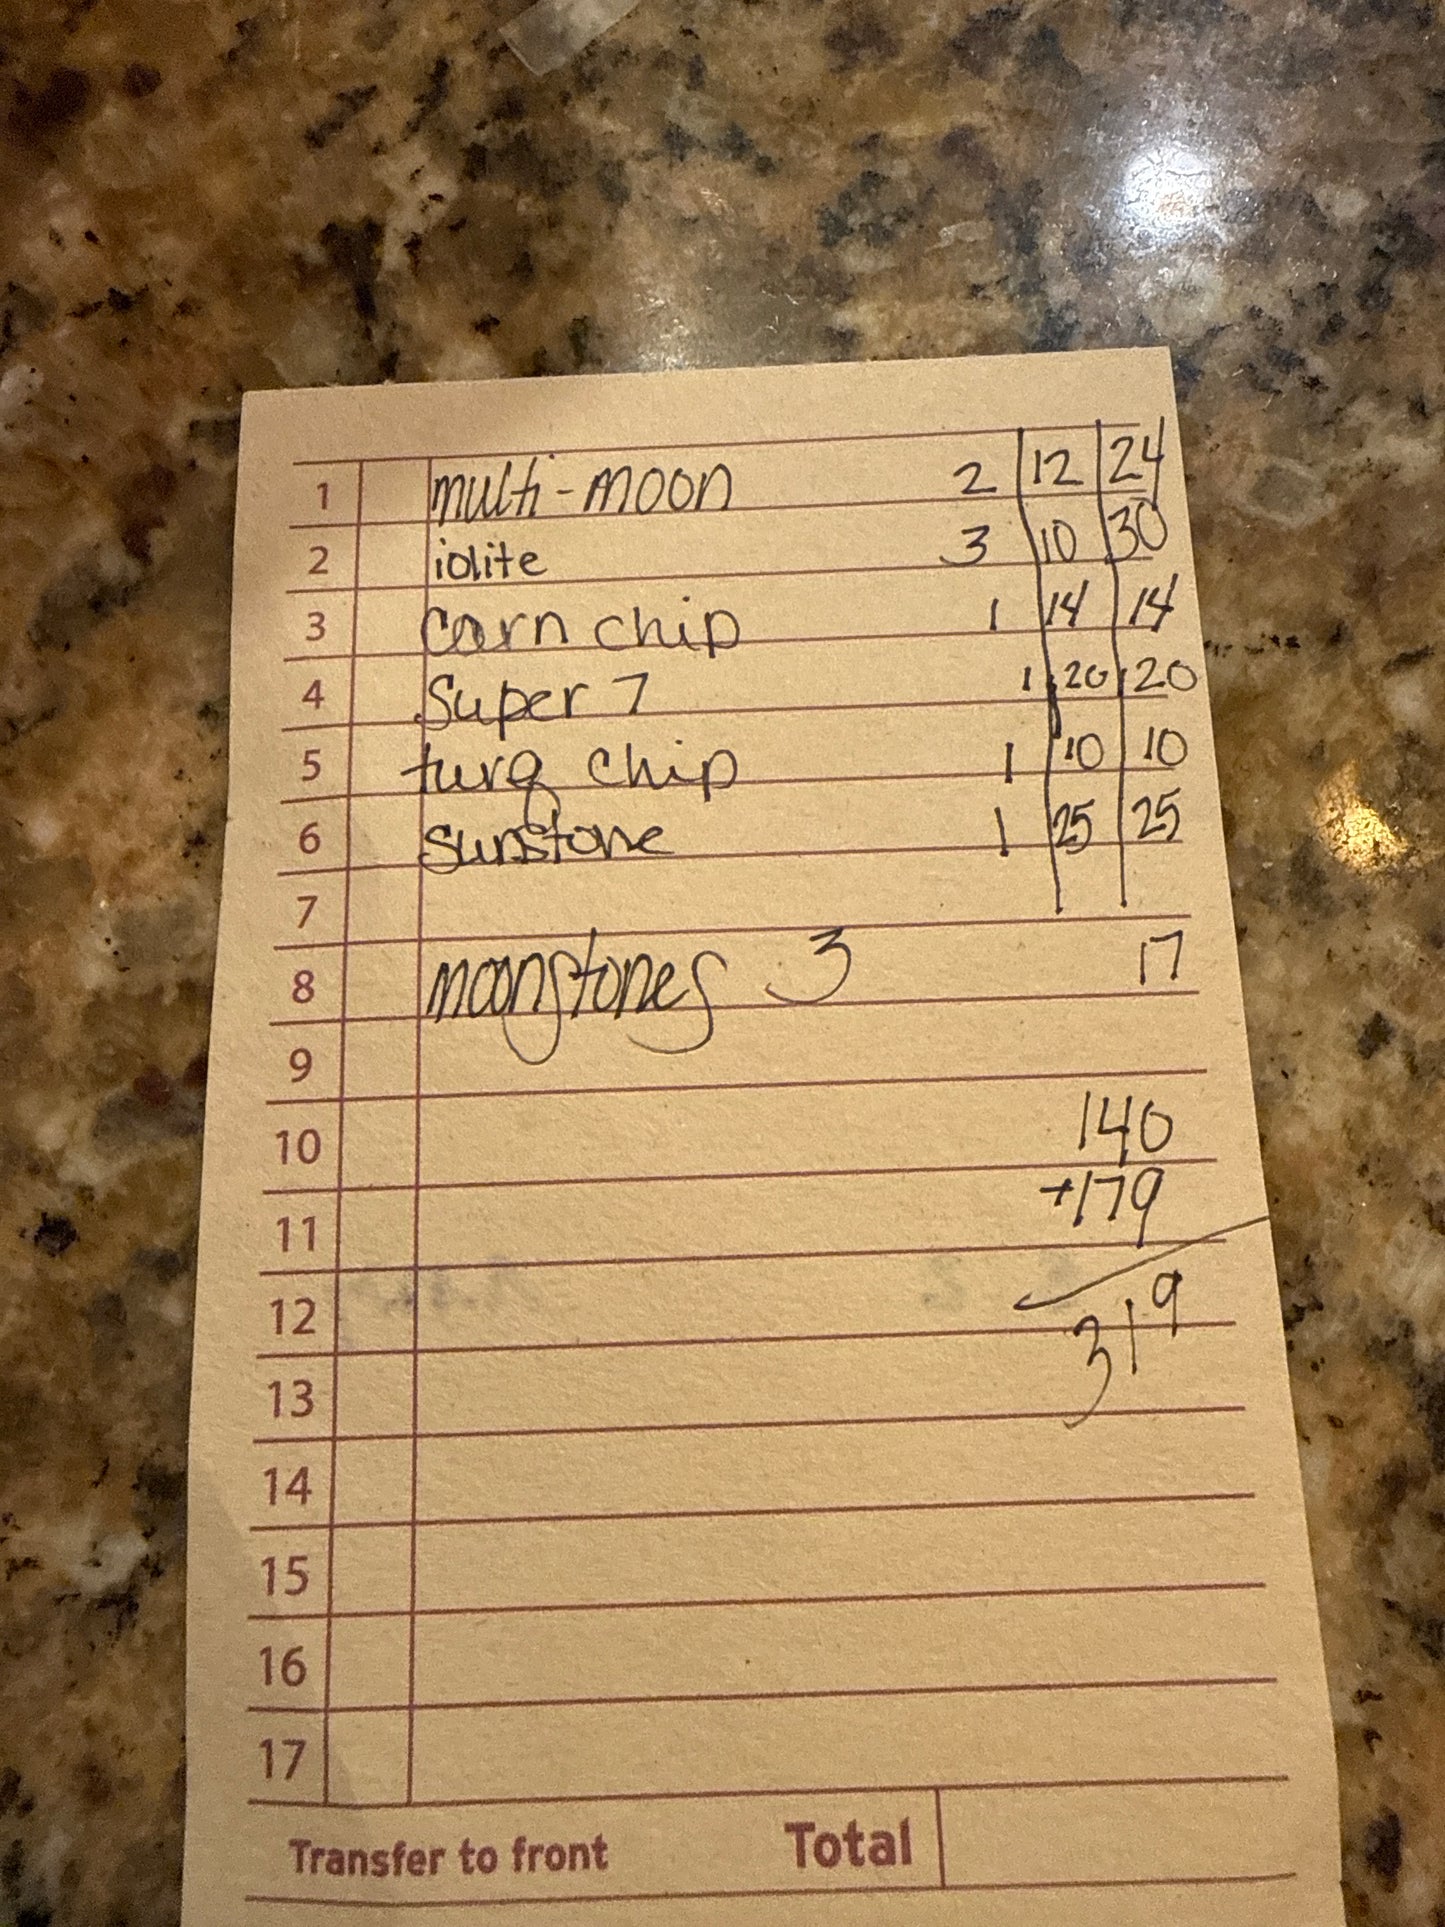 1 multi-moon 2 12 24
2 iolite 3 10 30
3 carn chip 1 14 14
4 Super 7 1 20 20
5 turq chip 1 10 10
6 sunstone 1 25 25
7
8 moonstones 3 17
9
10 140
11 +179
12 319
13
14
15
16
17
Transfer to front Total